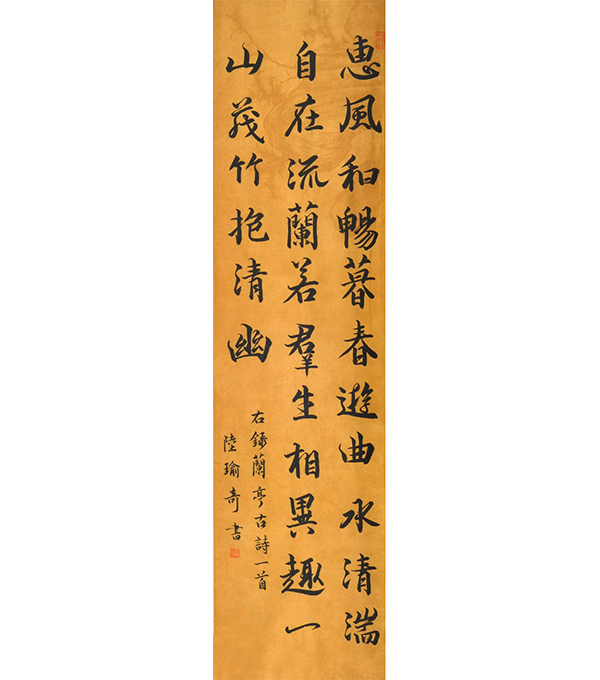 惠風和暢暮春遊曲水清湍
自在流蘭若羣生相異趣一
山茂竹抱清幽
右錄蘭亭古詩一首
陸瑜奇書